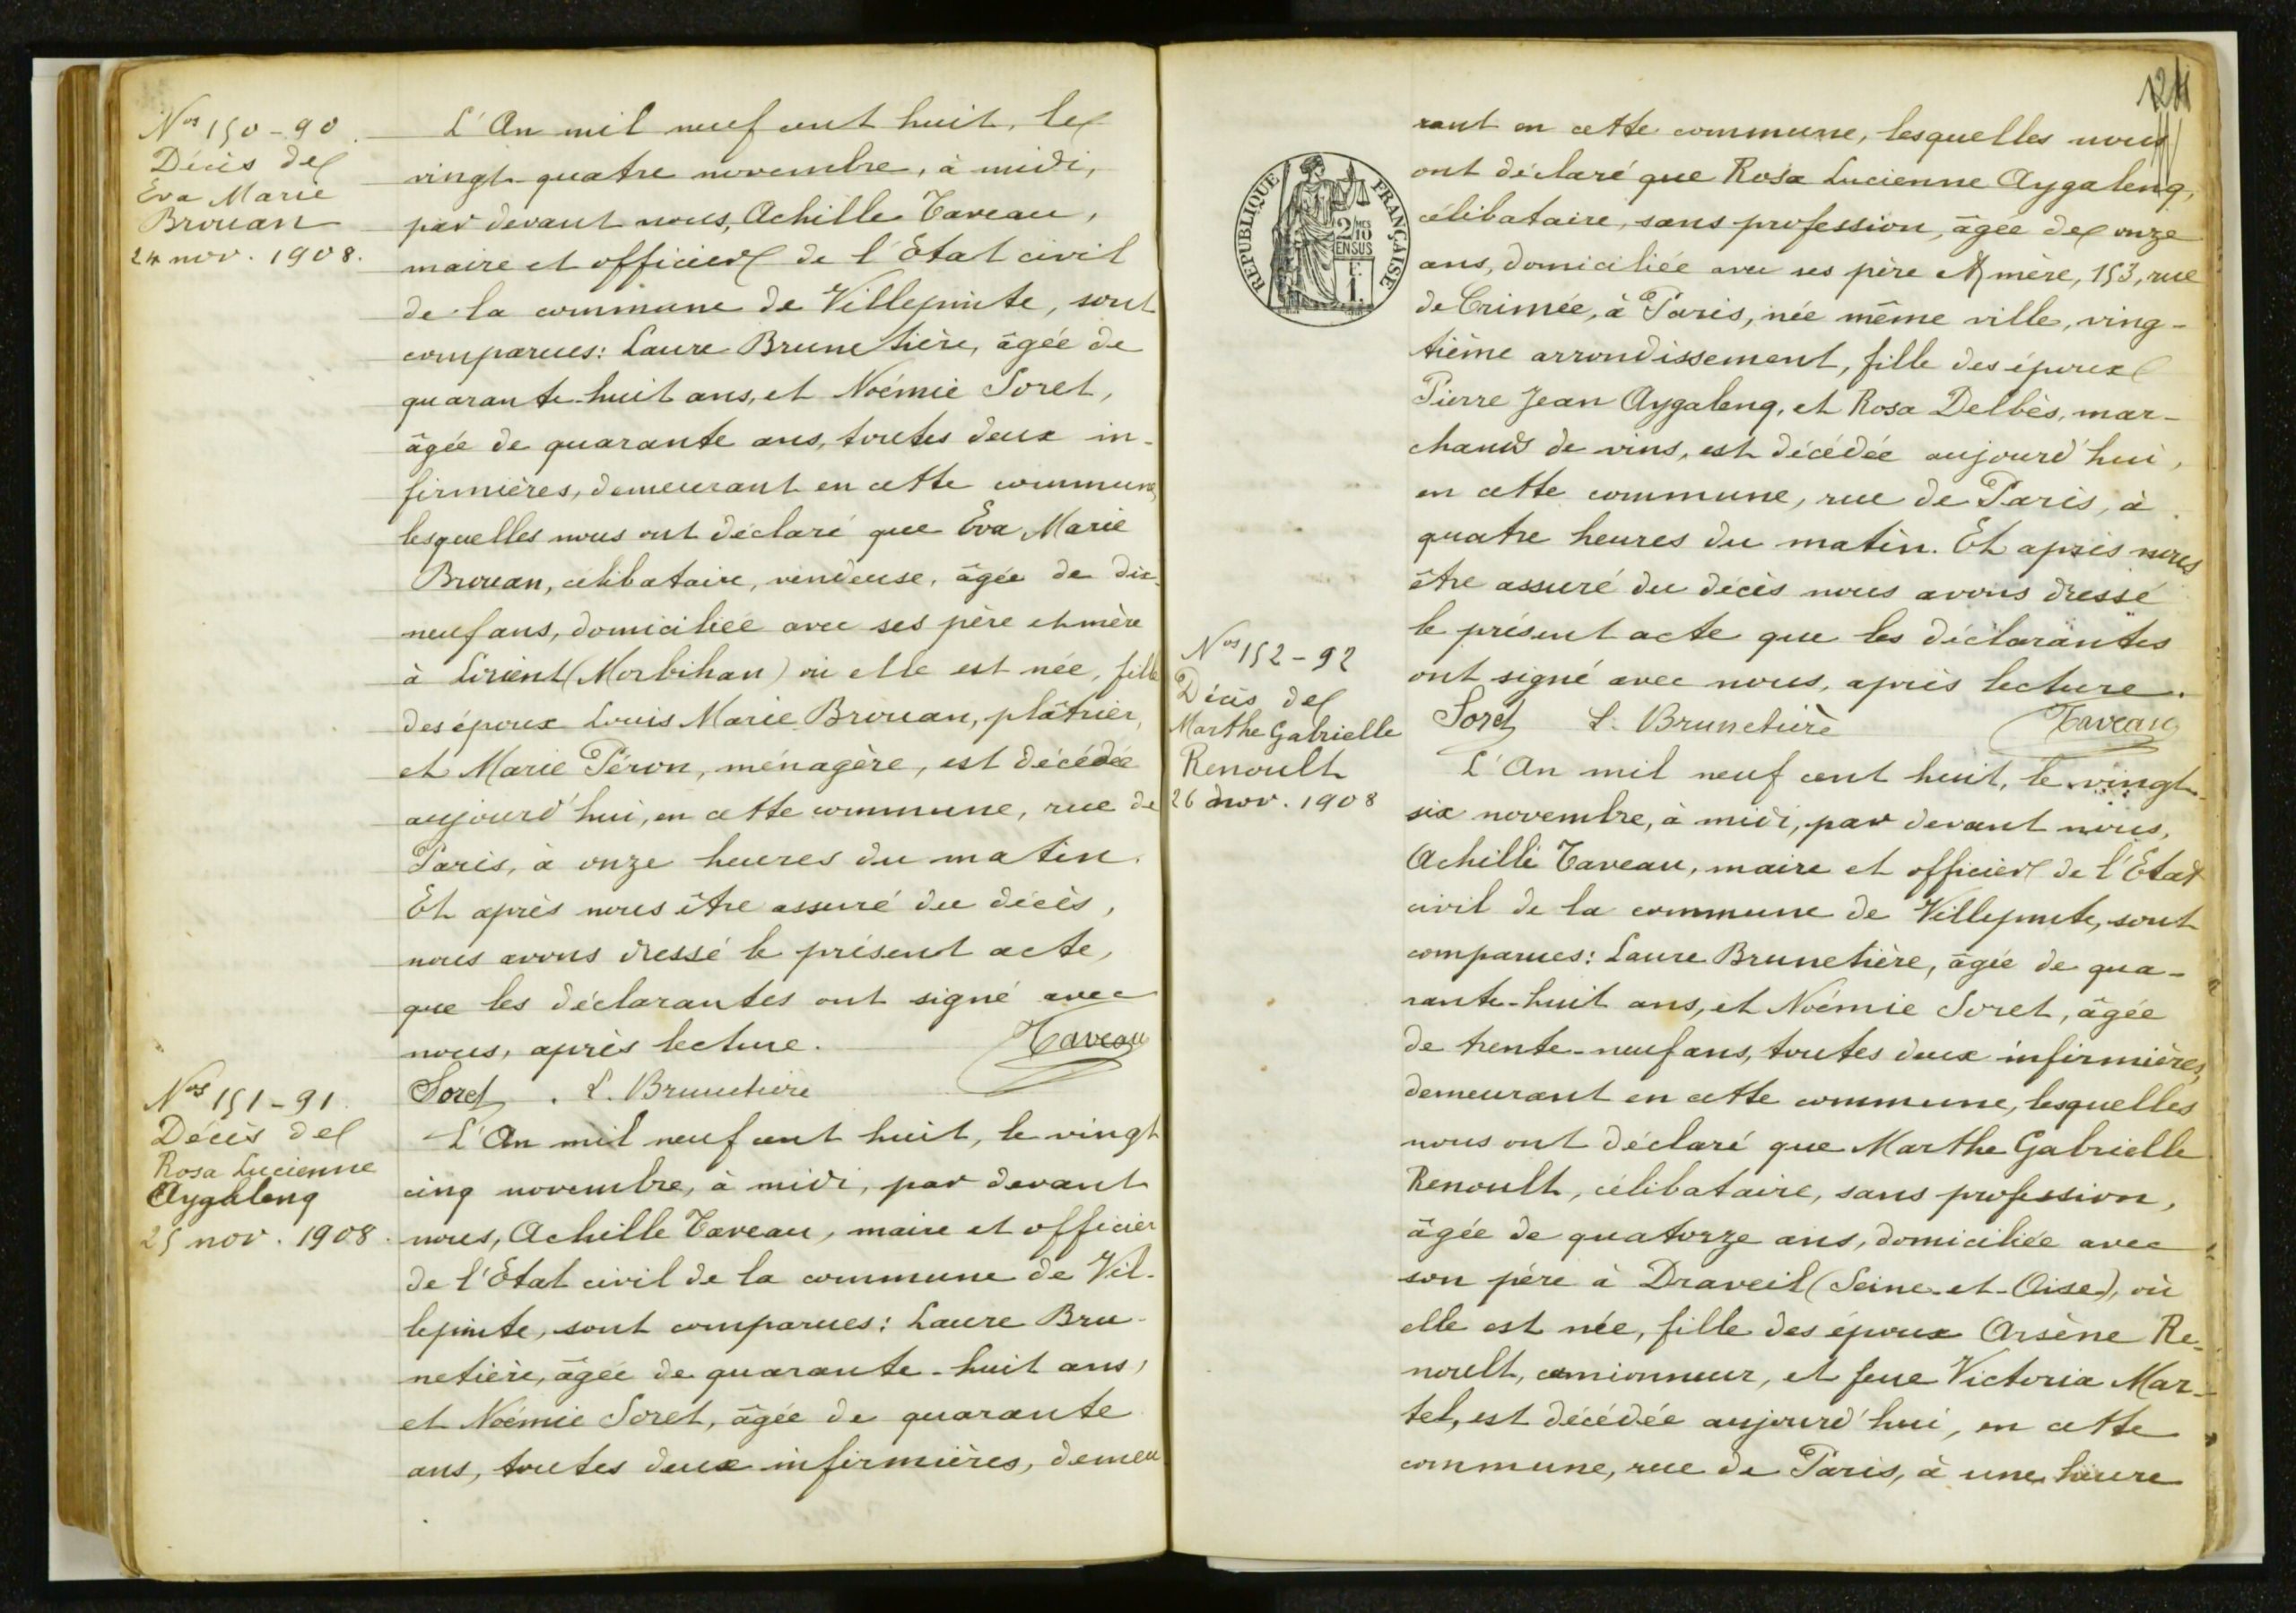 Nos 150-90
Décès de
Eva Marie
Brouan
24 nov. 1908.
L'An mil neuf cent huit, le
vingt-quatre novembre, à midi,
par devant nous, Achille Taveau,
maire et officier de l'Etat civil
de la commune de Villepinte, sont
comparues: Laure Brunetière, âgée de
quarante-huit ans, et Noémie Soret,
âgée de quarante ans, toutes deux in-
firmières, demeurant en cette commune,
lesquelles nous ont déclaré que Eva Marie
Brouan, célibataire, vendeuse, âgée de dix-
neuf ans, domiciliée avec ses père et mère
à Lorient (Morbihan) où elle est née, fille
des époux Louis Marie Brouan, plâtrier,
et Marie Péron, ménagère, est décédée
aujourd'hui, en cette commune, rue de
Paris, à onze heures du matin.
Et après nous être assuré du décès,
nous avons dressé le présent acte,
que les déclarantes ont signé avec
nous, après lecture. Taveau
Soret . L. Brunetière
Nos 151-91
Décès de
Rosa Lucienne
Aygaleng
25 nov. 1908.
L'An mil neuf cent huit, le vingt
cinq novembre, à midi, par devant
nous, Achille Taveau, maire et officier
de l'Etat civil de la commune de Vil-
lepinte, sont comparues: Laure Bru-
netière, âgée de quarante-huit ans,
et Noémie Soret, âgée de quarante
ans, toutes deux infirmières, demeu
RÉPUBLIQUE FRANÇAISE
2/10 MES
EN SUS
rant en cette commune, lesquelles nous
ont déclaré que Rosa Lucienne Aygaleng,
célibataire, sans profession, âgée de onze
ans, domiciliée avec ses père et mère, 153, rue
de Crimée, à Paris, née même ville, ving-
tième arrondissement, fille des époux
Pierre Jean Aygaleng, et Rosa Delbès, mar-
chands de vins, est décédée aujourd'hui,
en cette commune, rue de Paris, à
quatre heures du matin. Et après nous
être assuré du décès nous avons dressé
le présent acte que les déclarantes
ont signé avec nous, après lecture.
Soret L. Brunetière Taveau
Nos 152-92
Décès de
Marthe Gabrielle
Renoult
26 nov. 1908
L'An mil neuf cent huit, le vingt-
six novembre, à midi, par devant nous,
Achille Taveau, maire et officier de l'Etat
civil de la commune de Villepinte, sont
comparues: Laure Brunetière, âgée de qua-
rante-huit ans, et Noémie Soret, âgée
de trente-neuf ans, toutes deux infirmières,
demeurant en cette commune, lesquelles
nous ont déclaré que Marthe Gabrielle
Renoult, célibataire, sans profession,
âgée de quatorze ans, domiciliée avec
son père à Draveil (Seine-et-Oise), où
elle est née, fille des époux Arsène Re-
noult, camionneur, et feue Victoria Mar-
tel, est décédée aujourd'hui, en cette
commune, rue de Paris, à une heure